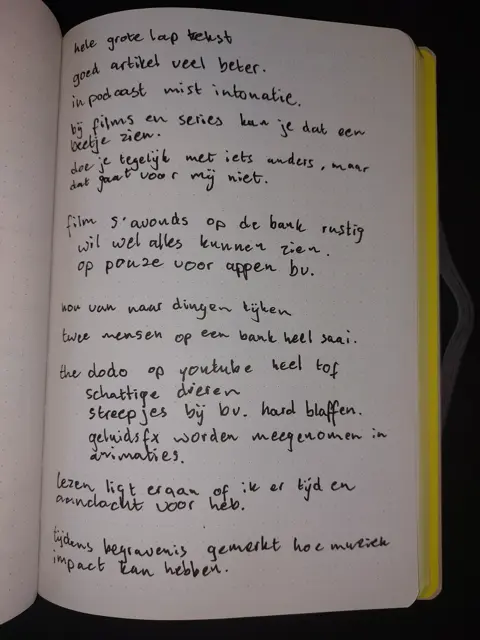 hele grote lap tekst
goed artikel veel beter.
in podcast mist intonatie.
bij films en series kun je dat een
beetje zien.
doe je tegelijk met iets anders, maar
dat gaat voor mij niet.
film s'avonds op de bank rustig
wil wel alles kunnen zien.
op pauze voor appen bv.
hou van naar dingen kijken
twee mensen op een bank heel saai.
the dodo op youtube heel tof
schattige dieren
streepjes bij bv. hard blaffen.
geluidsfx worden meegenomen in
animaties.
lezen ligt eraan of ik er tijd en
aandacht voor heb.
tijdens begravenis gemerkt hoe muziek
impact kan hebben.